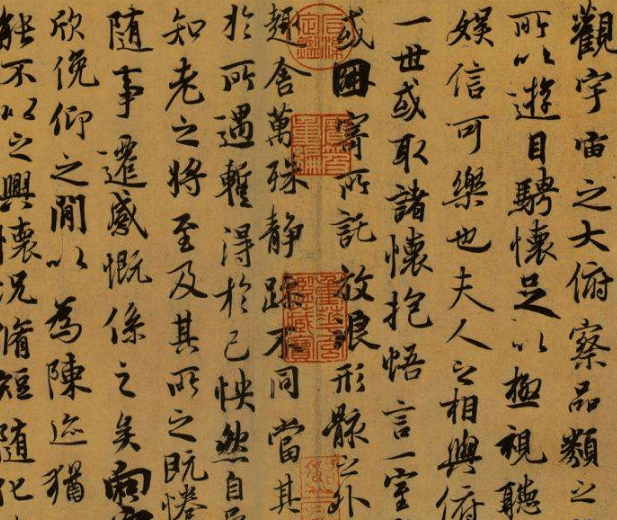 觀宇宙之大俯察品類之
所以遊目騁懷足以極視聽
娛信可樂也夫人之相與俯
一世或取諸懷抱悟言一室
或因寄所託放浪形骸之外
趣舍萬殊靜躁不同當其
於所遇暫得於己怏然自
知老之將至及其所之既惓
隨事遷感慨係之矣向
欣俛仰之間以為陳迹猶
能不以之興懷況脩短隨化